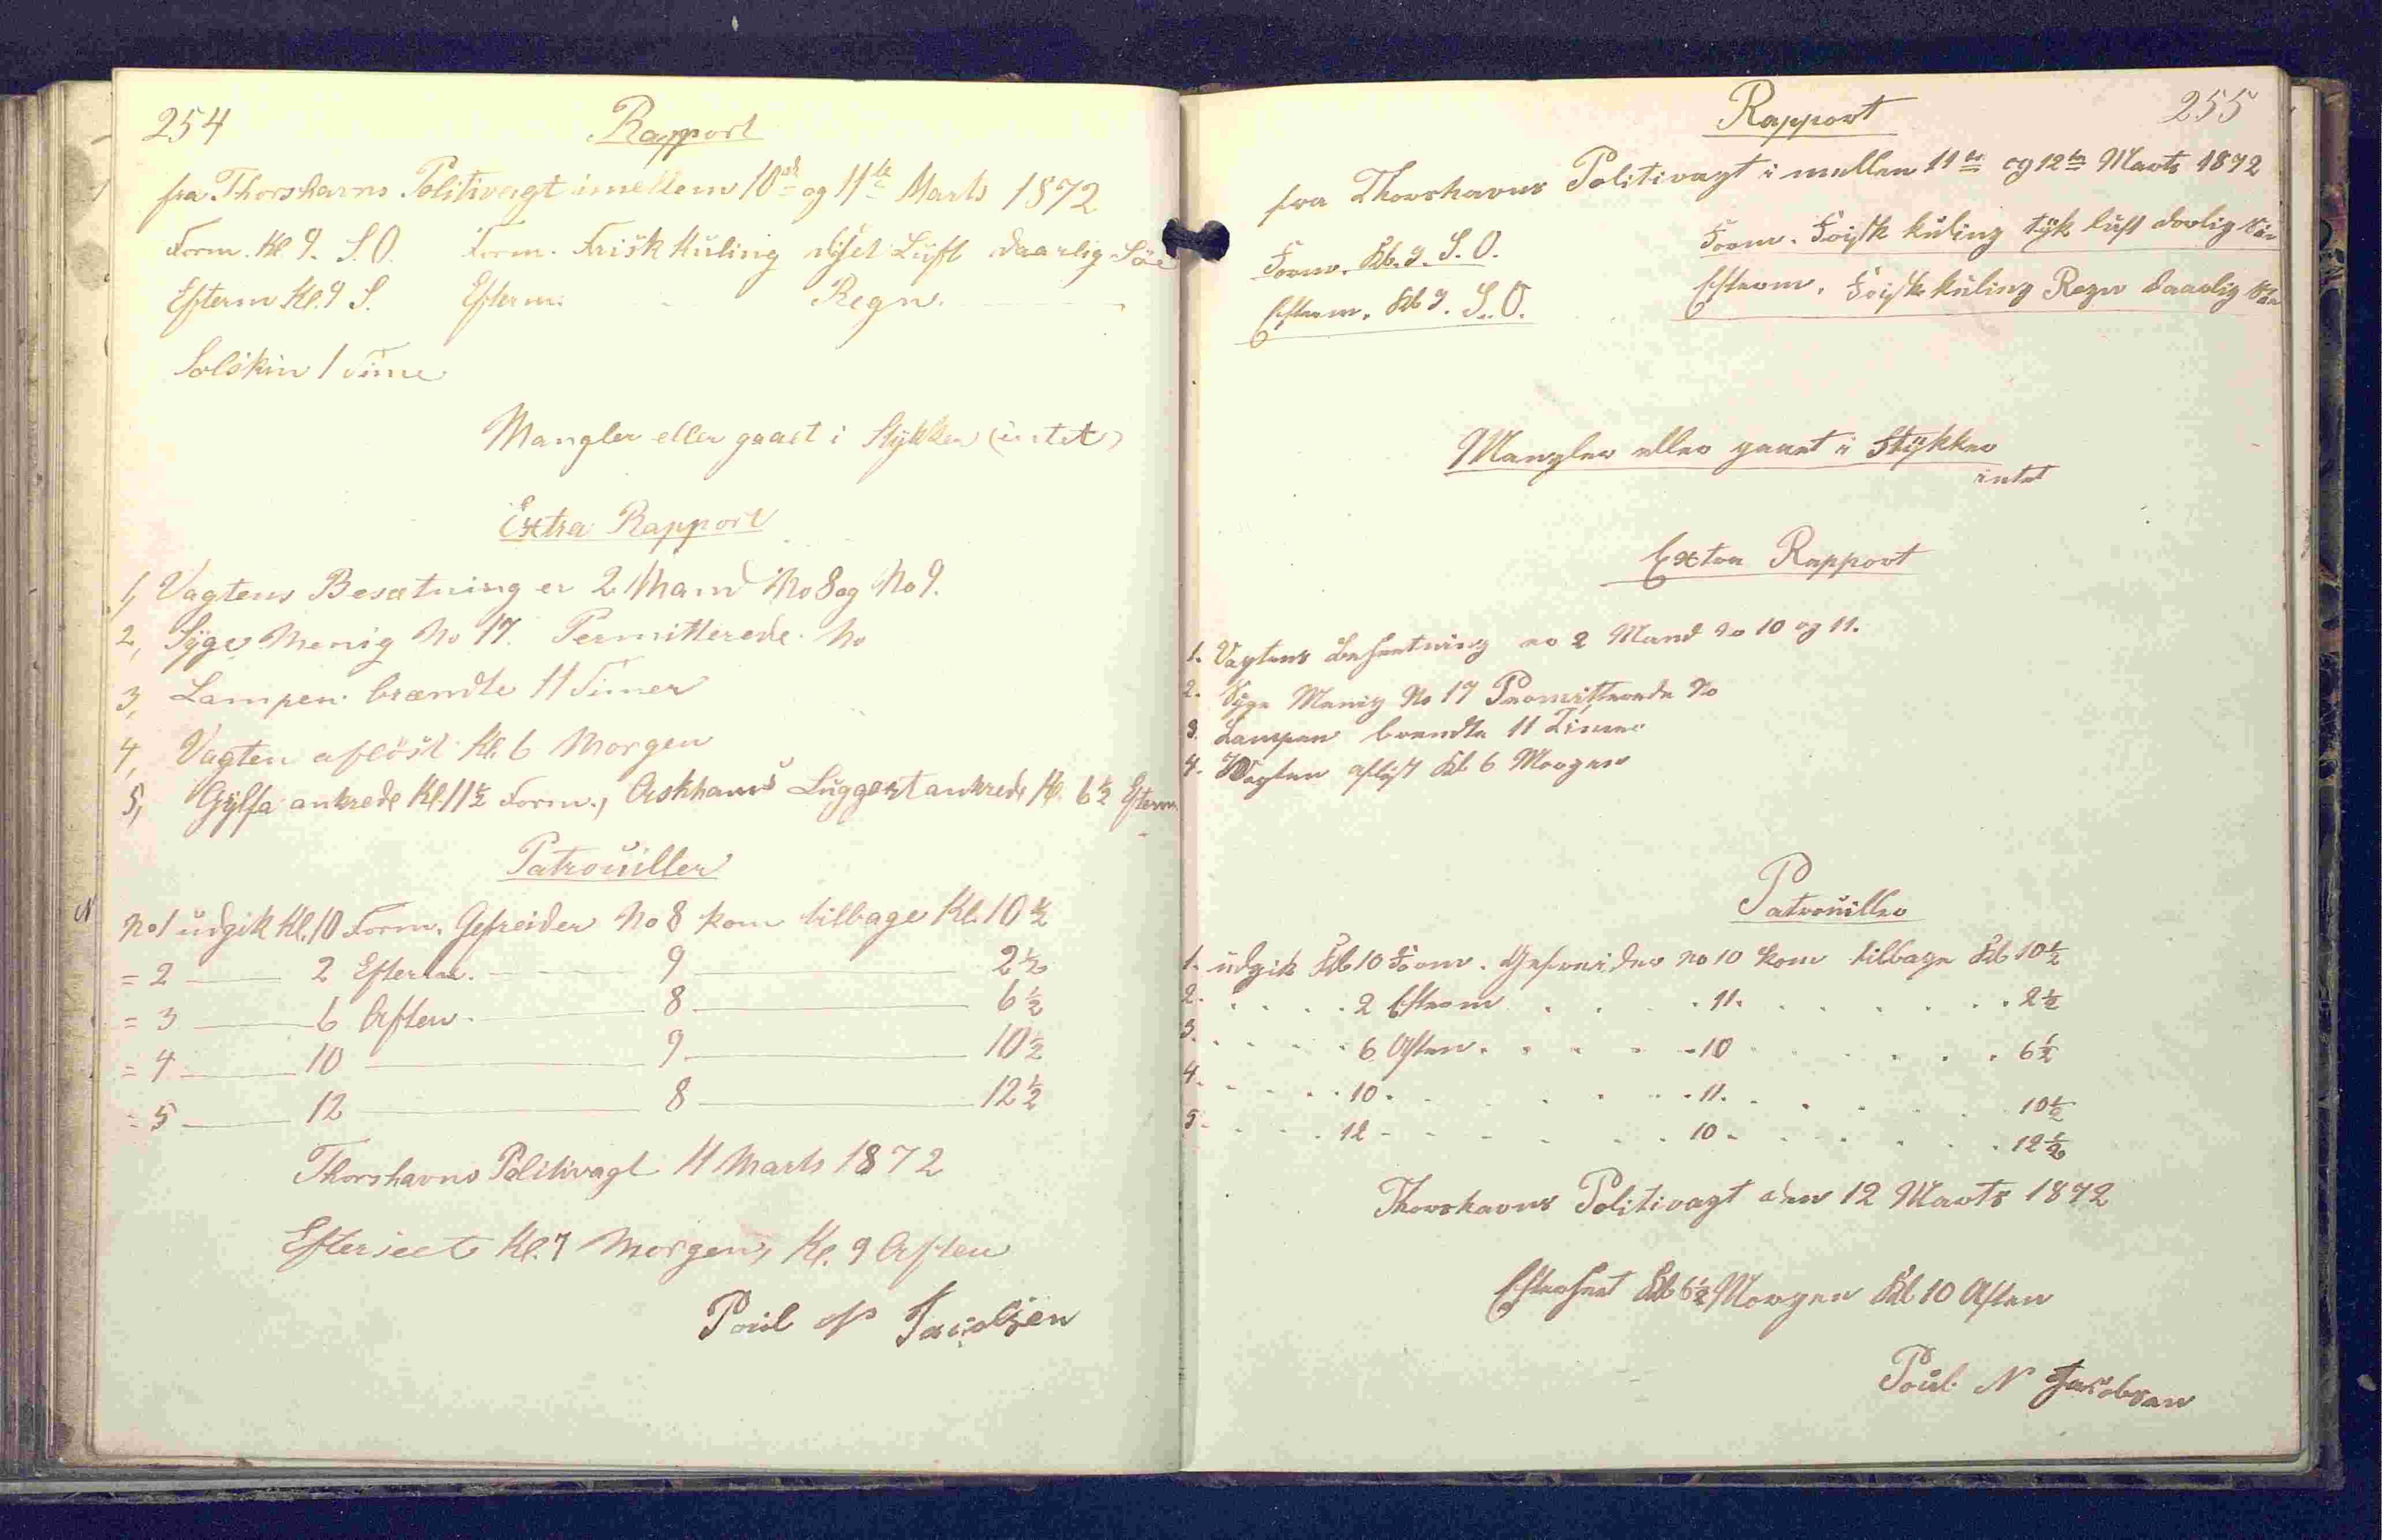 254
Rapport
fra Thorshavns Politivagt imellem 10de og 11te Marts 1872
Form. Kl 9. S.O. Form. Frisk Kuling diset Luft daarlig Söe
Efterm Kl. 9 S. Efterm: - Regn. - - -
Solskin 1 Time
Mangler eller gaaet i Stykker (intet)
Extra Rapport
1, Vagtens Besætning er 2 Mand No 8 og No 9.
2, Syge Menig No 17. Permitterede No
3, Lampen brændte 11 Timer
4, Vagten aflöst Kl. 6 Morgen
5, Gylfa ankrede Kl. 11½ Form., Askhams Luggert ankrede Kl. 6½ Efterm.
Patrouiller
No 1 udgik Kl. 10 Form. Gefreider No 8 kom tilbage Kl. 10½
= 2 — 2 Efterm. — 9 — 2½
= 3 — 6 Aften. — 8 — 6½
= 4 — 10 — 9 — 10½
= 5 — 12 — 8 — 12½
Thorshavns Politivagt 11 Marts 1872
Efterseet Kl. 7 Morgen, Kl. 9 Aften
Poul N Jacobsen
255
Rapport
fra Thorshavns Politivagt i mellem 11te og 12te Marts 1872
Form. Kl. 9. S.O. Form. Frisk kuling tyk luft dorlig Sö
Efterm. Kl 9. S.O. Efterm. Frisk kuling Regn daarlig Sö
Mangler eller gaaet i Stykker
intet
Extra Rapport
1. Vagtens besætning er 2 Mand No 10 og 11.
2. Syge Menig No 17 Permitterede No
3. Lampen brendte 11 Timer
4. Vagten aflöst Kl 6 Morgen
Patrouiller
1. udgik Kl 10 Form. Gefreider No 10 kom tilbage Kl 10½
2. . . . . 2 Efterm . . . . 11. . . . . . 2½
3. . . . . 6 Aften. . . . . 10 . . . . . 6½
4. . . . . 10. . . . . . 11. . . . . . 10½
5. . . . . 12 . . . . . 10. . . . . . 12½
Thorshavns Politivagt den 12 Marts 1872
Efterseet Kl 6½ Morgen Kl 10 Aften
Poul N Jacobsen